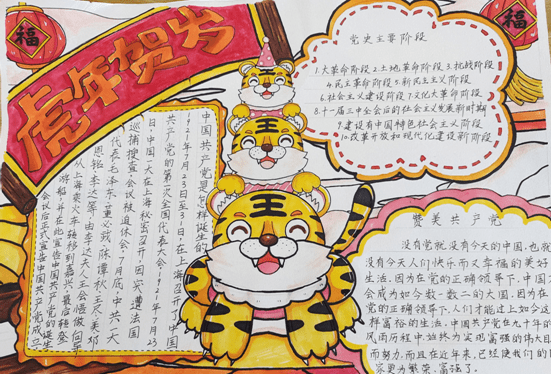 福
福
虎年贺岁
党史主要阶段
1.大革命阶段2.土地革命阶段3.抗战阶段
4.民主革命阶段5.新民主主义阶段
6.社会主义建设阶段7.文化大革命阶段
8.十一届三中全会后的社会主义发展新时期
9.建设有中国特色社会主义阶段
10.改革开放和现代化建设新阶段
王
王
王
中国共产党是怎样诞生的
1921年7月23日至31日,在上海召开了中国
共产党的第一次全国代表大会,1921年7月23
日,中国一大在上海秘密召开,因突遭法国
巡捕搜查,会议被迫休会。7月底,中共一大
代表毛泽东,董必武,陈潭秋,王尽美,邓
恩铭,李达等,由李达夫人王会悟做向导
从上海乘火车转移到嘉兴,最后登
游船,并在此宣告中国共产党的诞生
会议后正式宣告中国共产党成立
赞美共产党
没有党就没有今天的中国,也就
没有今天人们快乐而又幸福的美好
生活。因为在党的正确领导下,中国才
会成为如今数一数二的大国。因为在
党的正确领导下,人们才能过上如今这
样富裕的生活。中国共产党在九十年的
风雨历程中,始终为实现富强的伟大目
而努力。而且在近年来,已经使我们的国
家更为繁荣,富强了。